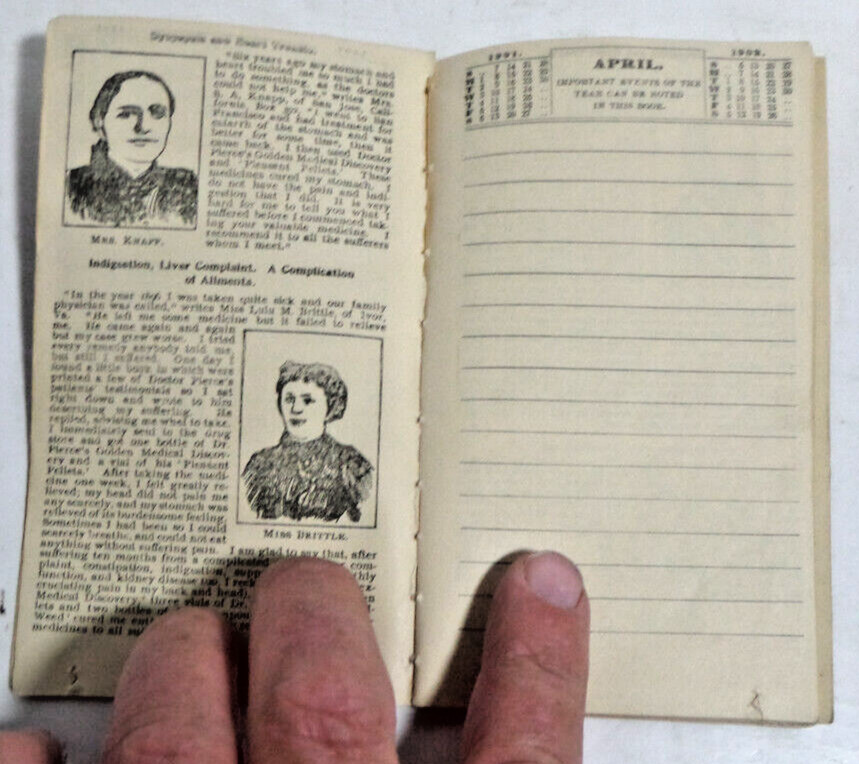 Dyspepsia and Heart Trouble.
"Six years ago my stomach and
heart troubled me so much I had
to do something, as the doctors
could not help me," writes Mrs.
S. A. Knapp, of San Jose, Cali-
fornia, Box 50. "I went to San
Francisco and had treatment for
catarrh of the stomach and was
better for some time, then it
came back. I then used Doctor
Pierce's Golden Medical Discovery
and 'Pleasant Pellets.' These
medicines cured my stomach. I
do not have the pain and indi-
gestion that I did. It is very
hard for me to tell you what I
suffered before I commenced tak-
ing your valuable medicine. I
recommend it to all the sufferers
whom I meet."
MRS. KNAPP.
Indigestion, Liver Complaint. A Complication
of Ailments.
"In the year I was taken quite sick and our family
physician was called," writes Miss Lulu M. Brittle, of Ivor,
Va. "He left me some medicine but it failed to relieve
me. He came again and again
but my case grew worse. I tried
every remedy anybody told me,
but still I suffered. One day I
found a little book in which were
printed a few of Doctor Pierce's
patients' testimonials so I sat
right down and wrote to him
describing my suffering. He
replied, advising me what to take.
I immediately sent to the drug
store and got one bottle of Dr.
Pierce's Golden Medical Discov-
ery and a vial of his 'Pleasant
Pellets.' After taking the medi-
cine one week, I felt greatly re-
lieved; my head did not pain me
any scarcely, and my stomach was
relieved of its burdensome feeling.
Sometimes I had been so I could
scarcely breathe, and could not eat
anything without suffering pain. I am glad to say that, after
suffering ten months from a complicated com-
plaint, constipation, indigestion, supp thly
function, and kidney disease too, I reck ex-
cruciating pain in my back and head),
Medical Discovery,' three vials of Dr.
lets and two bottles of
Weed' cured me
medicines to all
MISS BRITTLE.
1901.
APRIL.
IMPORTANT EVENTS OF THE
YEAR CAN BE NOTED
IN THIS BOOK.
1902.
S 7 14 21 28
M 1 8 15 22 29
T 2 9 16 23 30
W 3 10 17 24
T 4 11 18 25
F 5 12 19 26
S 6 13 20 27
S 6 13 20 27
M 7 14 21 28
T 1 8 15 22 29
W 2 9 16 23 30
T 3 10 17 24
F 4 11 18 25
S 5 12 19 26